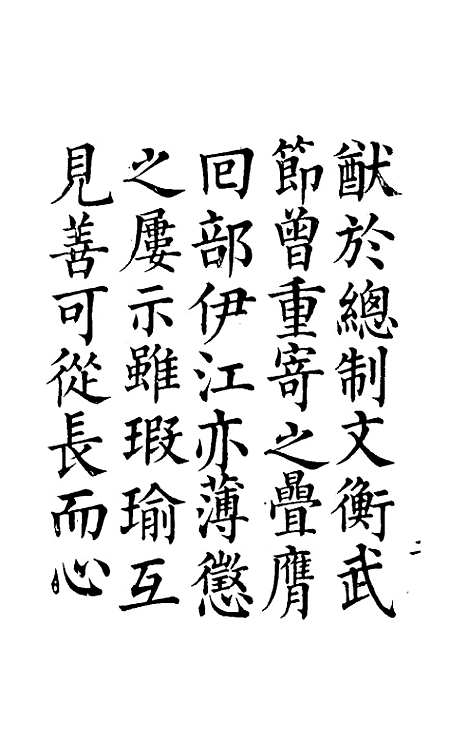 猷於總制文衡武
節曾重寄之疊膺
回部伊江亦薄懲
之屢示雖瑕瑜互
見善可從長而心
二